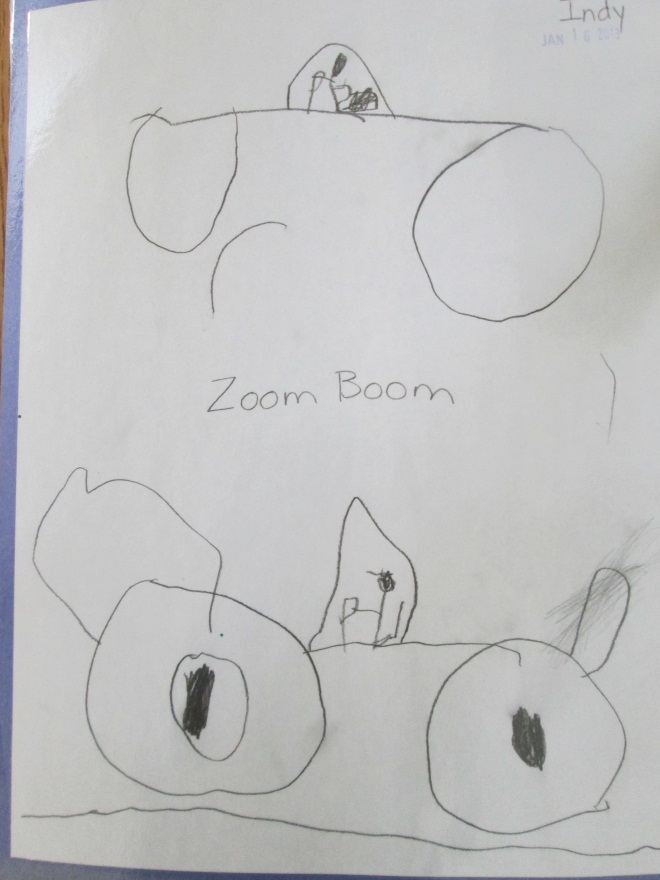 Indy
JAN 16 2013
Zoom Boom